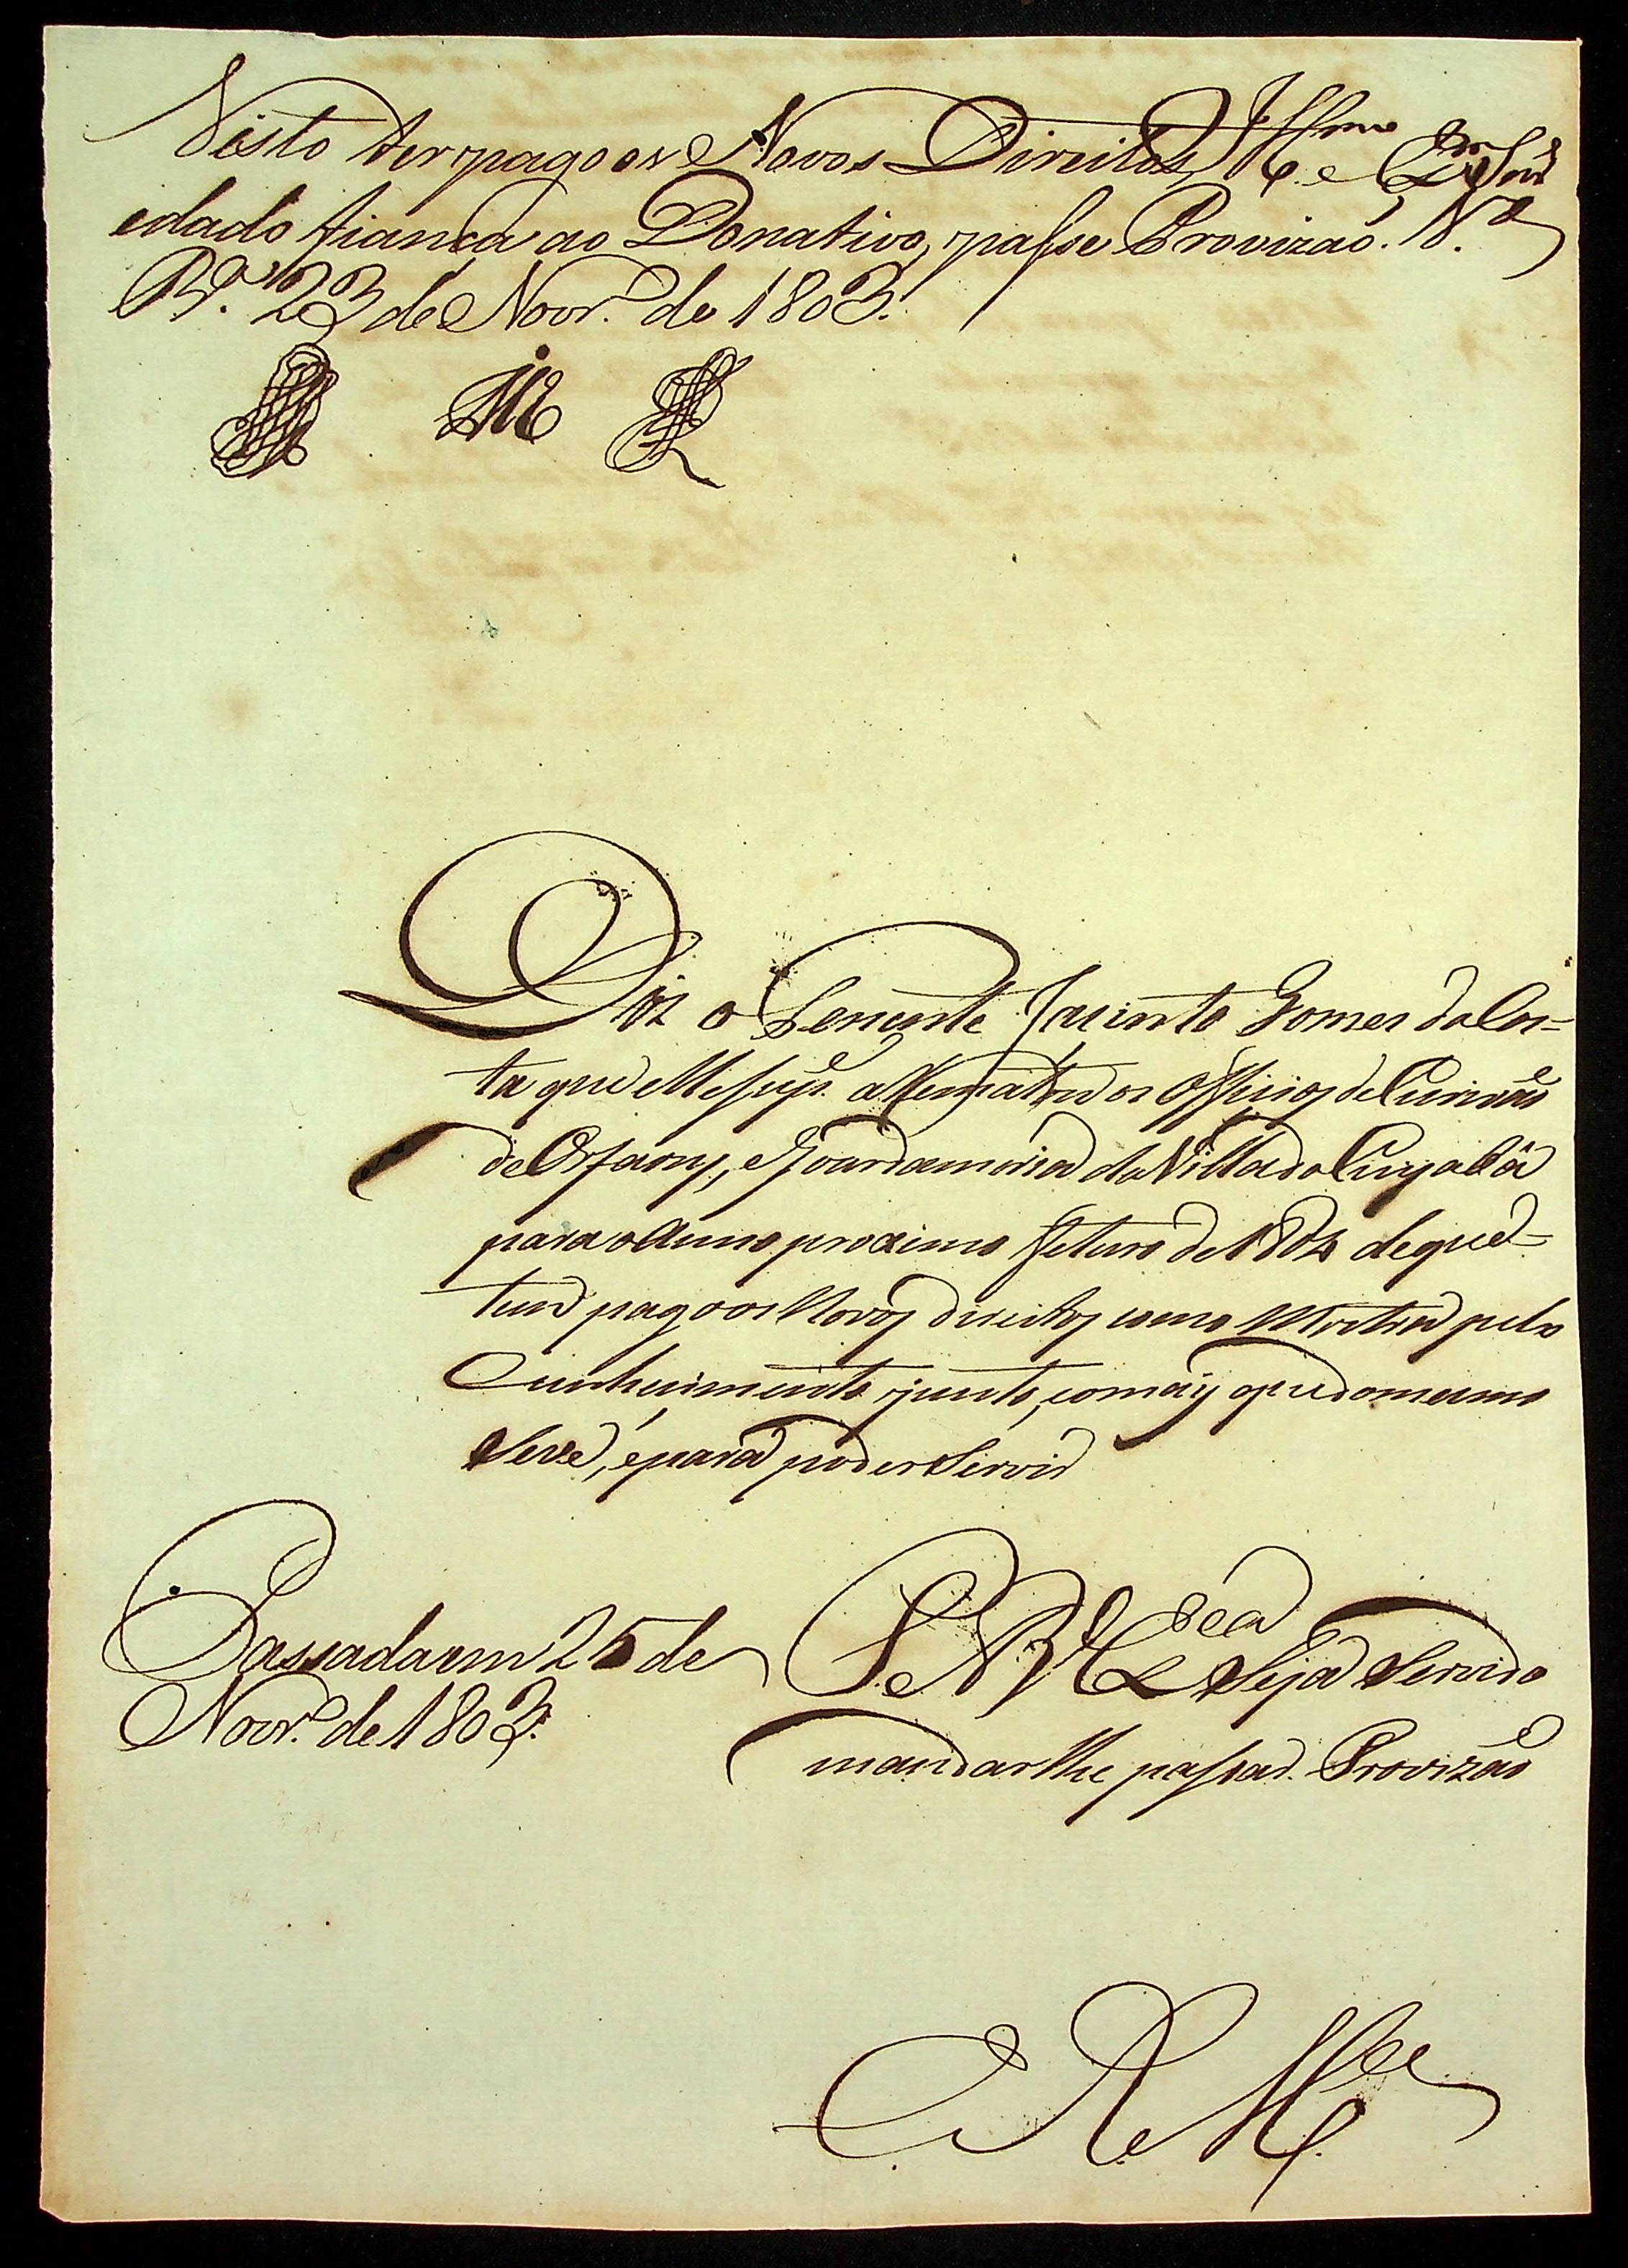 Visto ter pago os Novos Direitos, Illmo e Exmo Snr
e dado fiança ao Donativo, passe Provizaõ. V.a
R.a 23 de Novr.o de 1803.
Diz o Tenente Jacinto Gomes da Cos=
ta que elle sup.e a Rematou os Officios de Escrivaõ
de Orfaons, e Goardamoria da Villa do Cuyabâ
para o Anno proximo futuro de 1804 de que=
tem pago os Novos direitos como Mostra pelo
Conhecimento junto, com o q pertende
e para poder Servir
Passada em 25 de
Novr.o de 1803.
P. a V Ex.cia Seja Servido
mandar lhe passar Provizaõ
E R M.ce